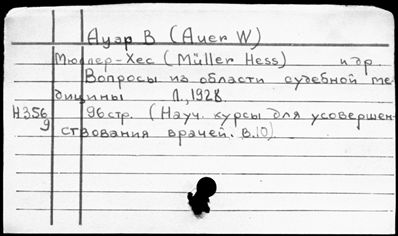 Ауэр В (Auer W)
Мюллер-Хес (Müller Hess) и др.
Вопросы из области судебной ме-
дицины Л., 1928.
Н356 96стр. (Науч. курсы для усовершен-
9 ствования врачей. в.10)